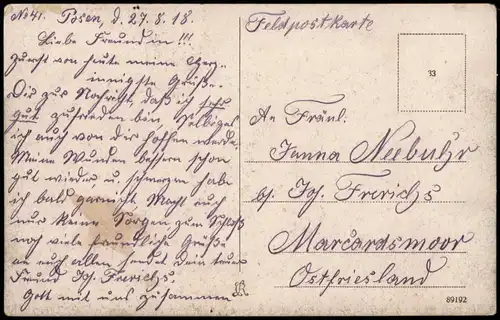 No 41. Posen, d. 27.8.18.
Liebe Freundin!!!
Zuerst von heute meine Herz-
innigste Grüße.
Dir zur Nachricht, daß ich sehr
gut zufrieden bin selbiges
ich auch von dir hoffen werde.
Meine Wunden bessern schon
gut wieder u. schmerzen habe
ich bald garnicht. Macht euch
nur keine Sorgen zum Schluß
noch viele freundliche Grüße
an euch allen sendet dein treuer
Freund Joh. Frerichs.
Gott mit uns zusammen
Feldpostkarte
33
An Fräul:
Janna Neebuhr
bj. Joh. Frerichs
Marcardsmoor
Ostfriesland
89192